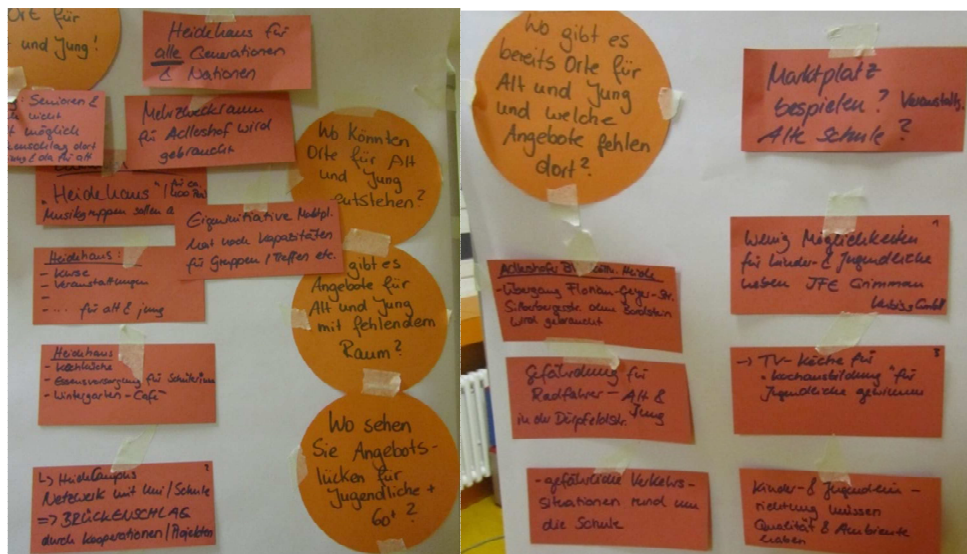 Ort für
und Jung!
Heidehaus für
alle Generationen
& Nationen
: Senioren &
nicht
möglich
dort
für alt
Mehrzweckraum
für Adlershof wird
gebraucht
Wo könnten
Orte für Alt
und Jung
entstehen?
"Heidehaus"
Musikgruppen sollen
Eigeninitiative Marktpl.
hat noch Kapazitäten
für Gruppen / Treffen etc.
Heidehaus:
- Kurse
- Veranstaltungen
-
- ... für alt & jung
gibt es
Angebote für
Alt und Jung
mit fehlendem
Raum?
Heidehaus
- Kochküche
- Essensversorgung für Schüler
- Wintergarten-Café
Wo sehen
Sie Angebots-
lücken für
Jugendliche +
60+?
↳ HeideCampus
Netzwerk mit Uni / Schule
=> BRÜCKENSCHLAG
durch Kooperationen / Projekte
Wo gibt es
bereits Orte für
Alt und Jung
und welche
Angebote fehlen
dort?
Marktplatz
bespielen? Veranstalt.
Alte Schule?
Adlershofer
- Übergang Florian-Geyer-Str.
ohne Bordstein
wird gebraucht
Wenig Möglichkeiten
für Kinder & Jugendliche
neben JFE
Gefährdung für
Radfahrer - Alt &
Jung
in der Dörpfeldstr.
-> TV-Köche für
"Kochausbildung" für
Jugendliche gewinnen
- gefährliche Verkehrs-
situationen rund um
die Schule
Kinder- & Jugendein-
richtung müssen
Qualität & Ambiente
haben